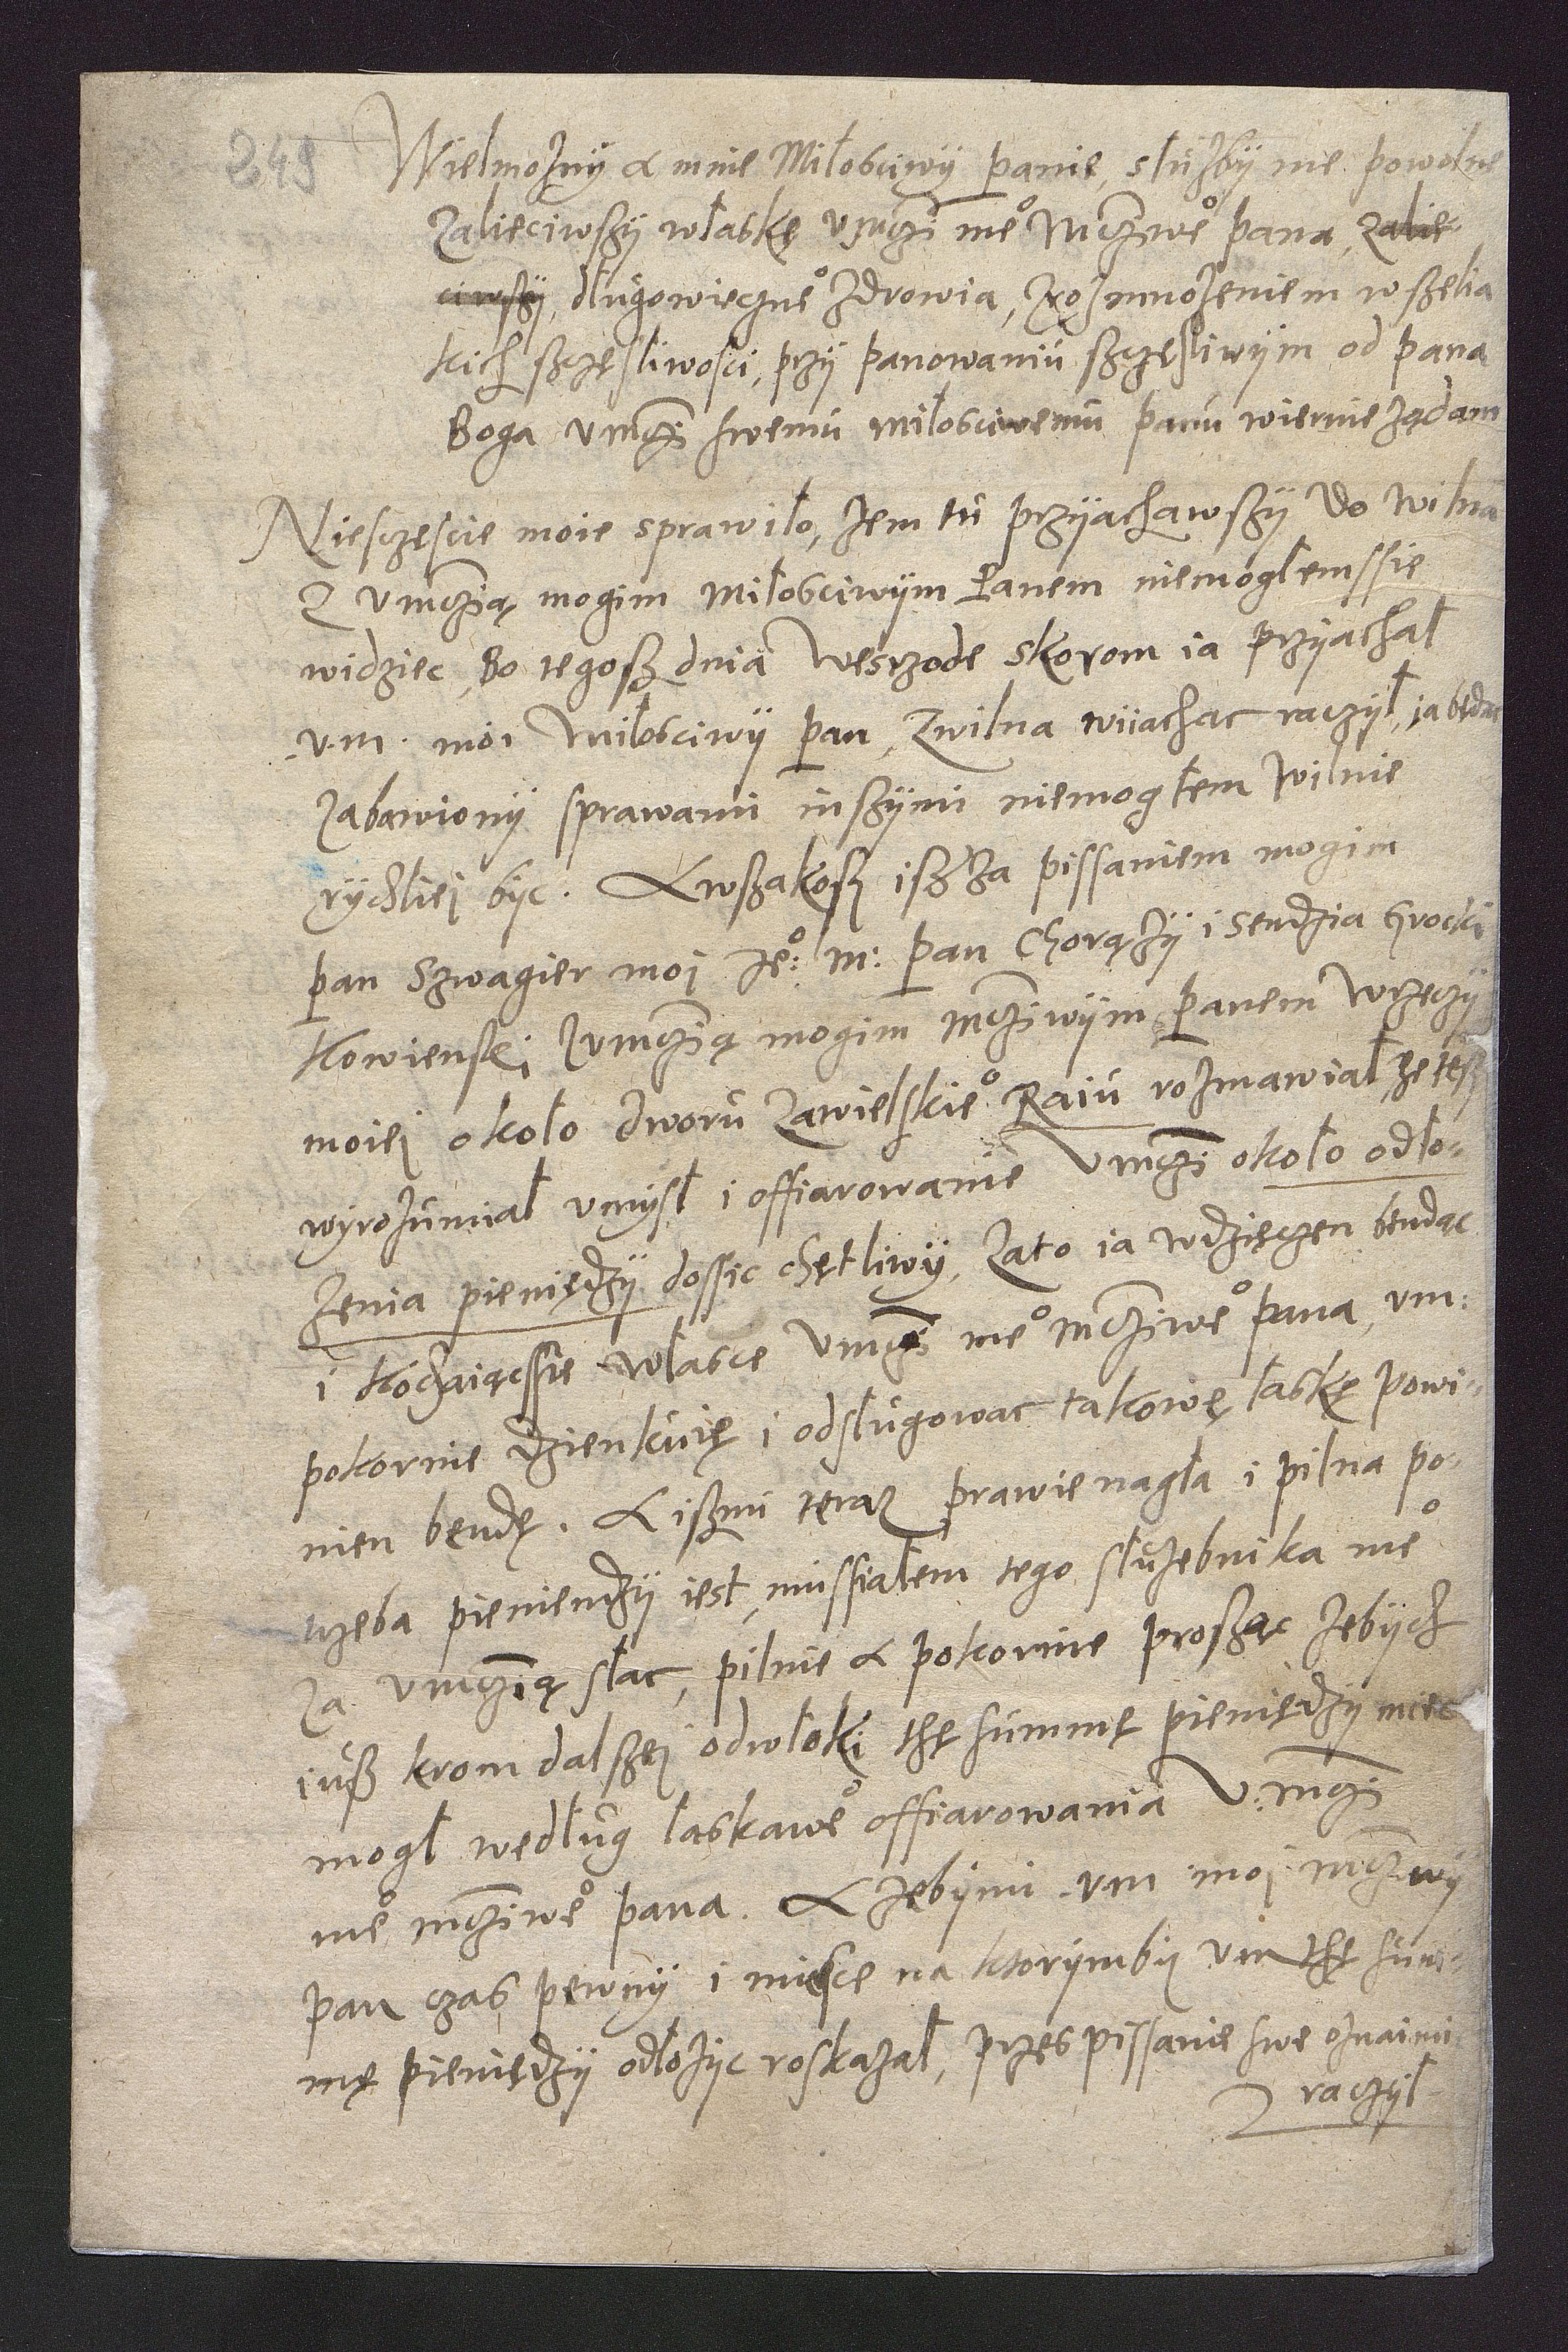 249
Wielmożny a mnie Miłosciwy panie, służby me powolne
zalieciwszy właskę vmczi me° Mcziwe° pana, zalie
ciwszy, długowieczne° zdrowia, zrozmnożeniem wszelia
kich szczęsliwosci, przy panowaniu szczęsliwym od pana
Boga vmczi swemu miłosciwemu panu wiernie żądam
Niesczęscie moie sprawiło, żem tu przyjachawszy do Wilna
z vmczią mogim miłosciwym Panem niemogłemssie
widziec, Bo tegosz dnia Wesrzode skorom ia przyjachał
v.m. moi Miłosciwy pan, zwilna wijachac raczył, ia będąc
zabawiony sprawami inszymi niemogłem Wilnie
rychliej byc. A wszakosz isz za pissaniem mogim
pan Szwagier moj Je°: m: pan Chorąży i Sendzia Grocki
Kowienskj zvmczią mogim mcziwym panem Wrzeczy
moiej około dworu Zawielskie° Raiu rozmawiał, że tesz
wyrozumiał vmysł i offiarowanie Vmczi około odło-
żenia pieniędzy dossic chętliwy, zato ia wdzięczen bendąc
i kochaiącssie własce Vmczi me° mcziwe° pana, vm:
pokornie dzienkuię i odsługowac takowę łaskę powi-
nien bendę. A iszmi teraz prawie nagła i pilna po-
trzeba pieniendzy iest, mussiałem tego służebnika me°
za vmczią słac, pilnie a pokornie prosząc żebych
iusz krom dalszej odwłoki thę summę pieniędzy miec
mogł według łaskawe° offiarowania V.mczi
me° mcziwe° pana. A żebymi vm moj mcziwy
pan czas pewny i miesce na ktorymby vm thę sum-
mę pieniędzy odłożyc roskazał, przes pissanie swe oznaimi
raczył